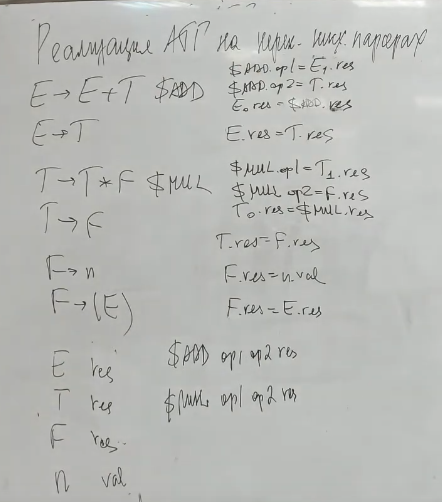 Реализация АТГ на нерек. нисх. парсерах
E → E + T $ADD
$ADD.op1 = E₁.res
$ADD.op2 = T.res
E₀.res = $ADD.res
E → T
E.res = T.res
T → T * F $MUL
$MUL.op1 = T₁.res
$MUL op2 = F.res
T₀.res = $MUL.res
T → F
T.res = F.res
F → n
F.res = n.val
F → (E)
F.res = E.res
E res
$ADD op1 op2 res
T res
$MUL op1 op2 res
F res
n val